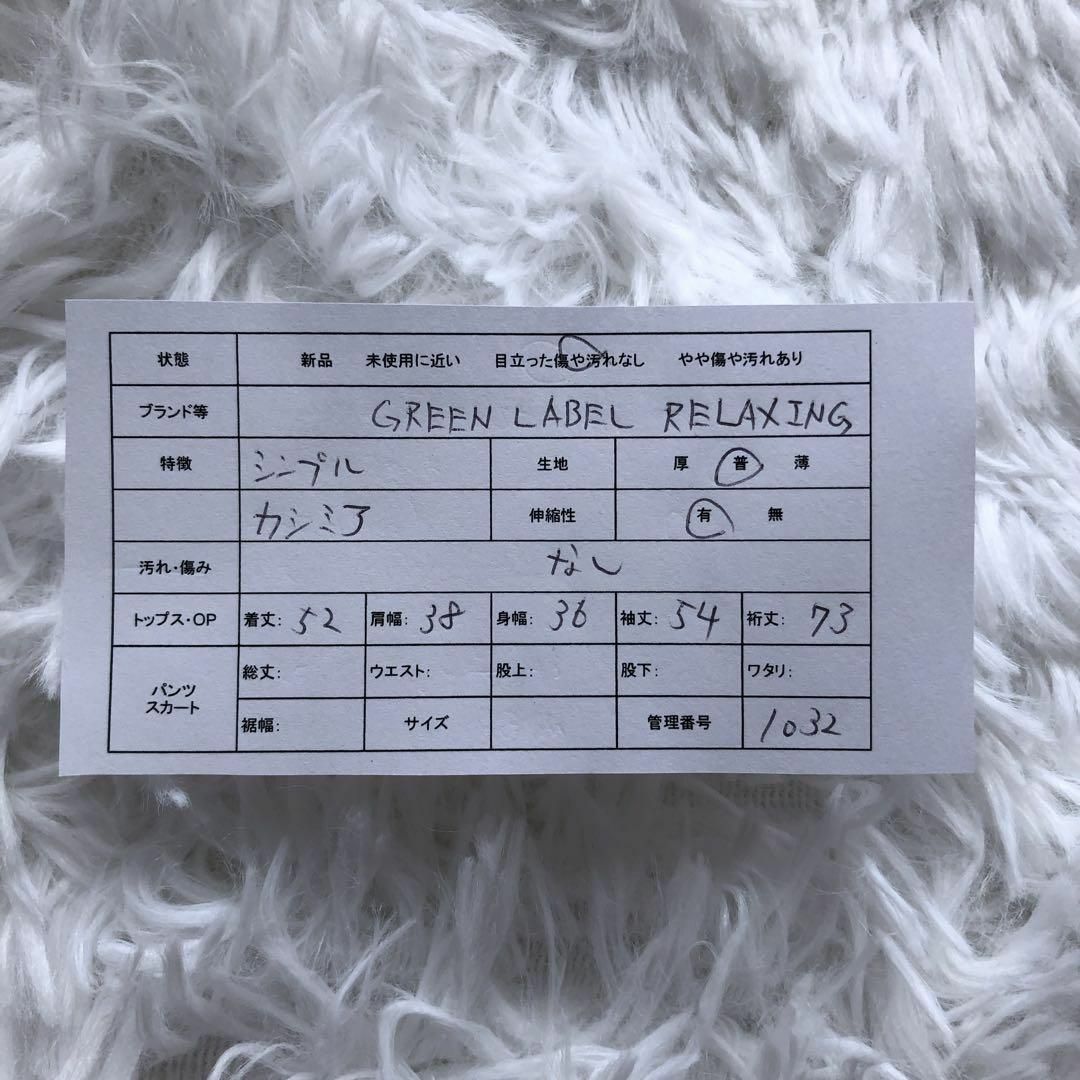 状態 新品 未使用に近い 目立った傷や汚れなし やや傷や汚れあり
ブランド等 GREEN LABEL RELAXING
特徴 シンプル 生地 厚 普 薄
カシミア 伸縮性 有 無
汚れ・傷み なし
トップス・OP 着丈: 52 肩幅: 38 身幅: 36 袖丈: 54 裄丈: 73
パンツ スカート 総丈: ウエスト: 股上: 股下: ワタリ:
裾幅: サイズ 管理番号 1032